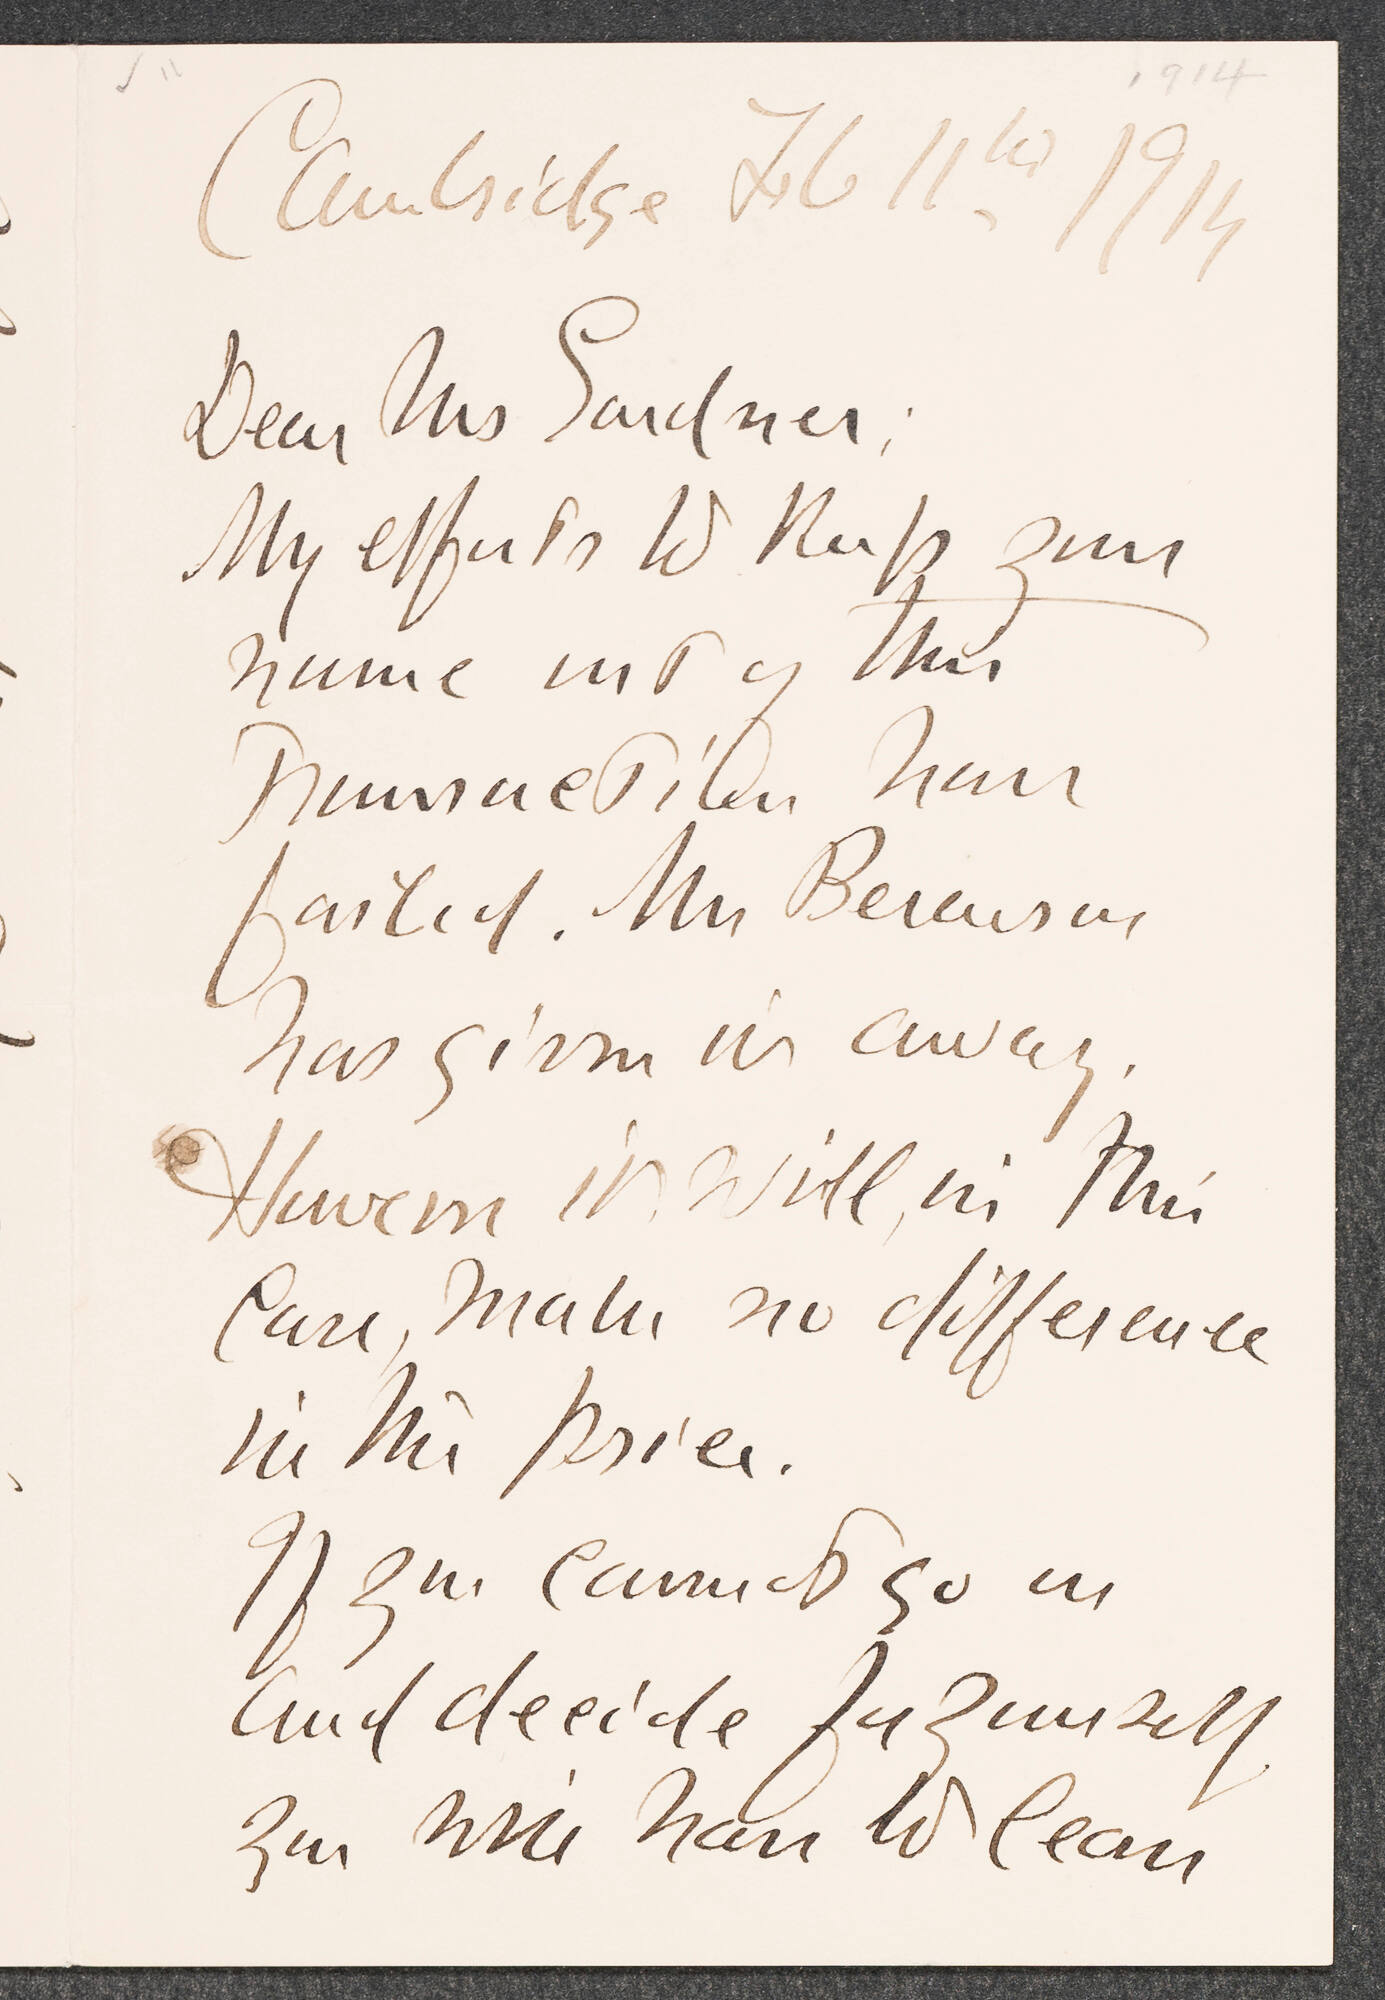 1914
Cambridge Feb 11th 1914
Dear Mrs Gardner;
My efforts to keep your
name out of this
transaction have
failed. Mr Berenson
has given it away.
However it will, in this
case, make no difference
in the price.
If you cannot go on
and decide for yourself
you will have to leave